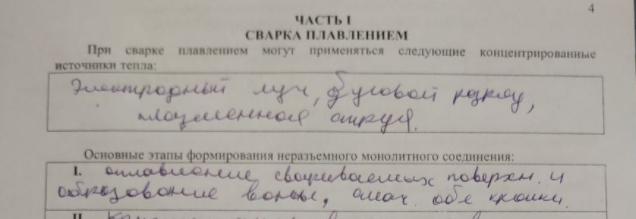 4
ЧАСТЬ I
СВАРКА ПЛАВЛЕНИЕМ
При сварке плавлением могут применяться следующие концентрированные
источники тепла:
Электродный луч, дуговой
плазменная струя.
Основные этапы формирования неразъемного монолитного соединения:
I. оплавление свариваемых поверхн. и
образование ванны, обе кромки.
II.